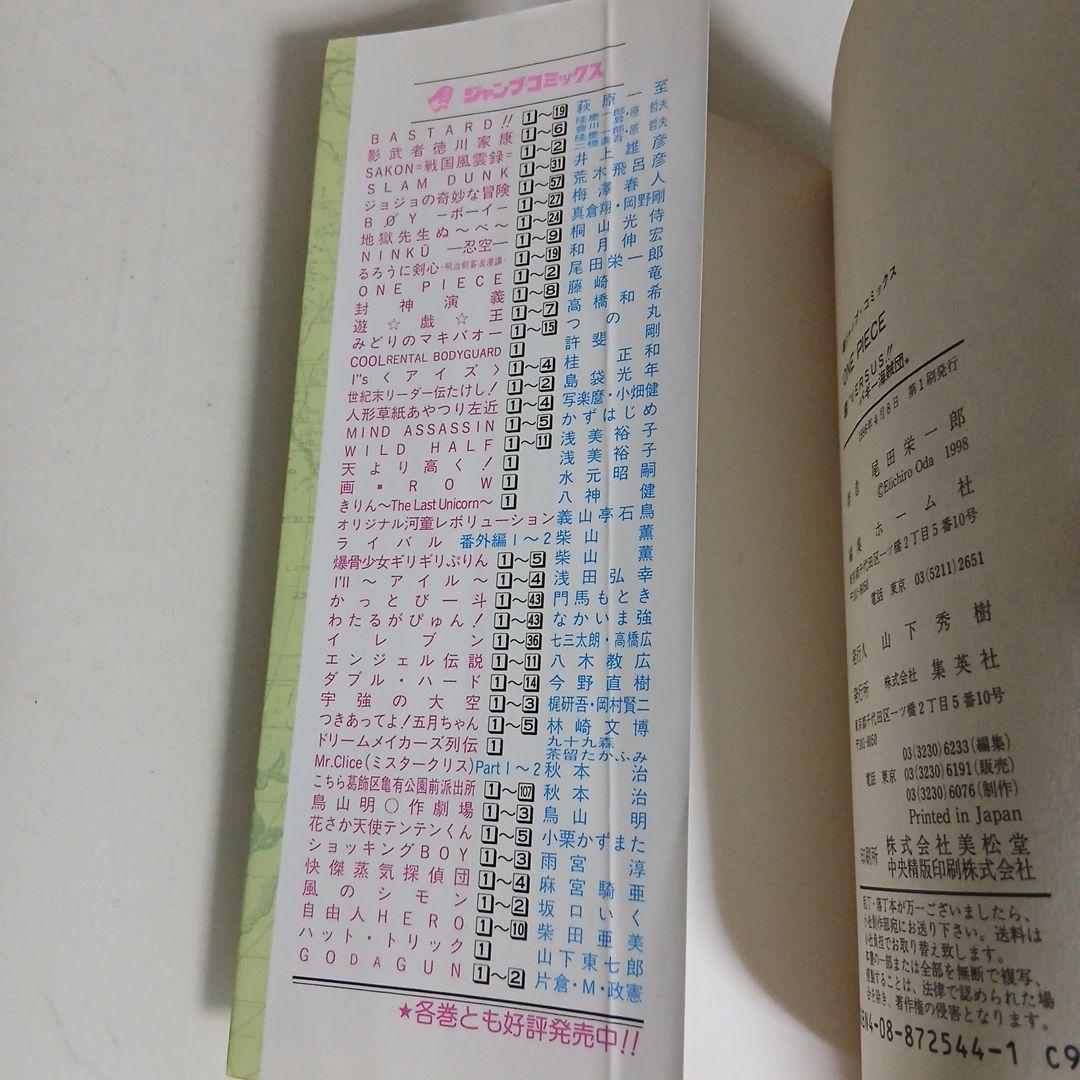 ジャンプ・コミックス
BASTARD!! 1～19 萩原一至
影武者徳川家康 1～6 隆慶一郎・原哲夫 會川昇
SAKON=戦国風雲録= 1～2 隆慶一郎・原哲夫 二橋進吾
SLAM DUNK 1～31 井上雄彦
ジョジョの奇妙な冒険 1～57 荒木飛呂彦
BØY －ボーイ－ 1～27 梅澤春人
地獄先生ぬ～べ～ 1～24 真倉翔・岡野剛
NINKŪ ―忍空― 1～9 桐山光侍
るろうに剣心-明治剣客浪漫譚- 1～19 和月伸宏
ONE PIECE 1～2 尾田栄一郎
封神演義 1～8 藤崎竜
遊☆戯☆王 1～7 高橋和希
みどりのマキバオー 1～15 つの丸
COOL RENTAL BODYGUARD 1 許斐剛
I"s〈アイズ〉 1～4 桂正和
世紀末リーダー伝たけし! 1～2 島袋光年
人形草紙あやつり左近 1～4 写楽麿・小畑健
MIND ASSASSIN 1～5 かずはじめ
WILD HALF 1～11 浅美裕子
天より高く! 1 浅美裕子
画▪ROW 1 水元昭嗣
きりん～The Last Unicorn～ 1 八神健
オリジナル河童レボリューション 義山亭石鳥
ライバル 番外編1～2 柴山薫
爆骨少女ギリギリぷりん 1～5 柴山薫
I'll～アイル～ 1～4 浅田弘幸
かっとび一斗 1～43 門馬もとき
わたるがぴゅん! 1～43 なかいま強
イレブン 1～36 七三太朗・高橋広
エンジェル伝説 1～11 八木教広
ダブル・ハード 1～14 今野直樹
宇強の大空 1～3 梶研吾・岡村賢二
つきあってよ!五月ちゃん 1～5 林崎文博
ドリームメイカーズ列伝 1 九十九森 茶留たかふみ
Mr.Clice(ミスタークリス) Part 1～2 秋本治
こちら葛飾区亀有公園前派出所 1～107 秋本治
鳥山明〇作劇場 1～3 鳥山明
花さか天使テンテンくん 1～5 小栗かずまた
ショッキングBOY 1～3 雨宮淳
快傑蒸気探偵団 1～4 麻宮騎亜
風のシモン 1～2 坂口いく
自由人HERO 1～10 柴田亜美
ハット・トリック 1 山下東七郎
GODAGUN 1～2 片倉・M・政憲
★各巻とも好評発売中!!
ジャンプ・コミックス
ONE PIECE
"VERSUS!!
バギー海賊団"
1998年4月8日 第1刷発行
著者 尾田栄一郎
©Eiichiro Oda 1998
編集 ホーム社
東京都千代田区一ツ橋2丁目5番10号
〒101-8050
電話 東京 03(5211)2651
発行人 山下秀樹
発行所 株式会社 集英社
東京都千代田区一ツ橋2丁目5番10号
〒101-8050
03(3230)6233(編集)
電話 東京 03(3230)6191(販売)
03(3230)6076(制作)
Printed in Japan
印刷所 株式会社美松堂
中央精版印刷株式会社
乱丁・落丁本が万一ございましたら、
小社制作部宛にお送り下さい。送料は
小社負担でお取り替え致します。
本書の一部または全部を無断で複写、
複製することは、法律で認められた場
合を除き、著作権の侵害となります。
BN4-08-872544-1 C9